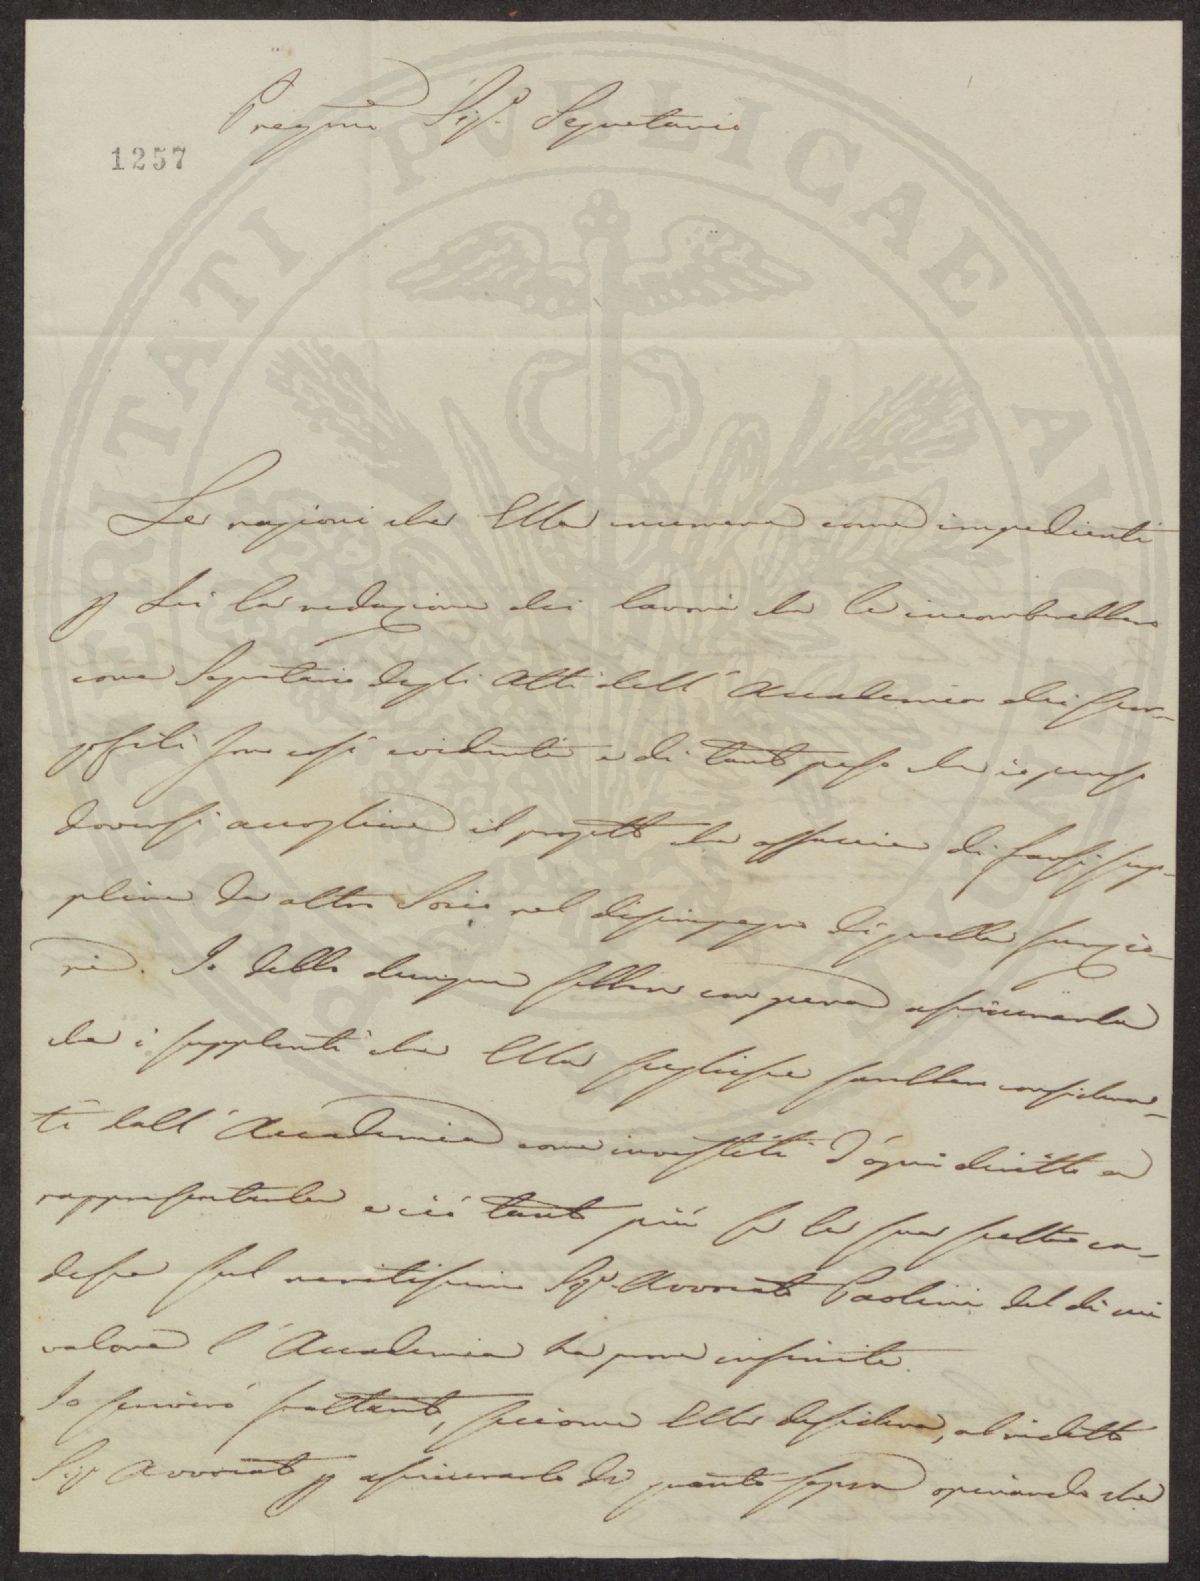 Pregmo Sigr. Segretario
1257
PROSPERITATI PVBLICAE AVGENDAE
Le ragioni che Ella enumera come impedienti
p Lei la redazione dei lavori che le incomberebbero
come Segretario degli Atti dell' Accademia dei Geor-
gofili sono così evidenti e di tanto peso che io penso
doversi accogliere il progetto che affaccia di farsi sup-
plire da altro Socio nel disimpegno di quelle funzio-
ni. Io debbo dunque sebben con pena assicurarla
che i supplenti che Ella scegliesse sarebbero considera-
ti dall' Accademia come investiti d'ogni diritto a
rappresentarla e ciò tanto più se la sua scelta ca-
desse sul meritissimo Sigr. Avvocato Paolini del di cui
valore l' Accademia ha prove infinite.
Io scriverò frattanto, siccome Ella desidera, al sudetto
Sigr Avvocato p assicurarlo di quanto sopra opinando che